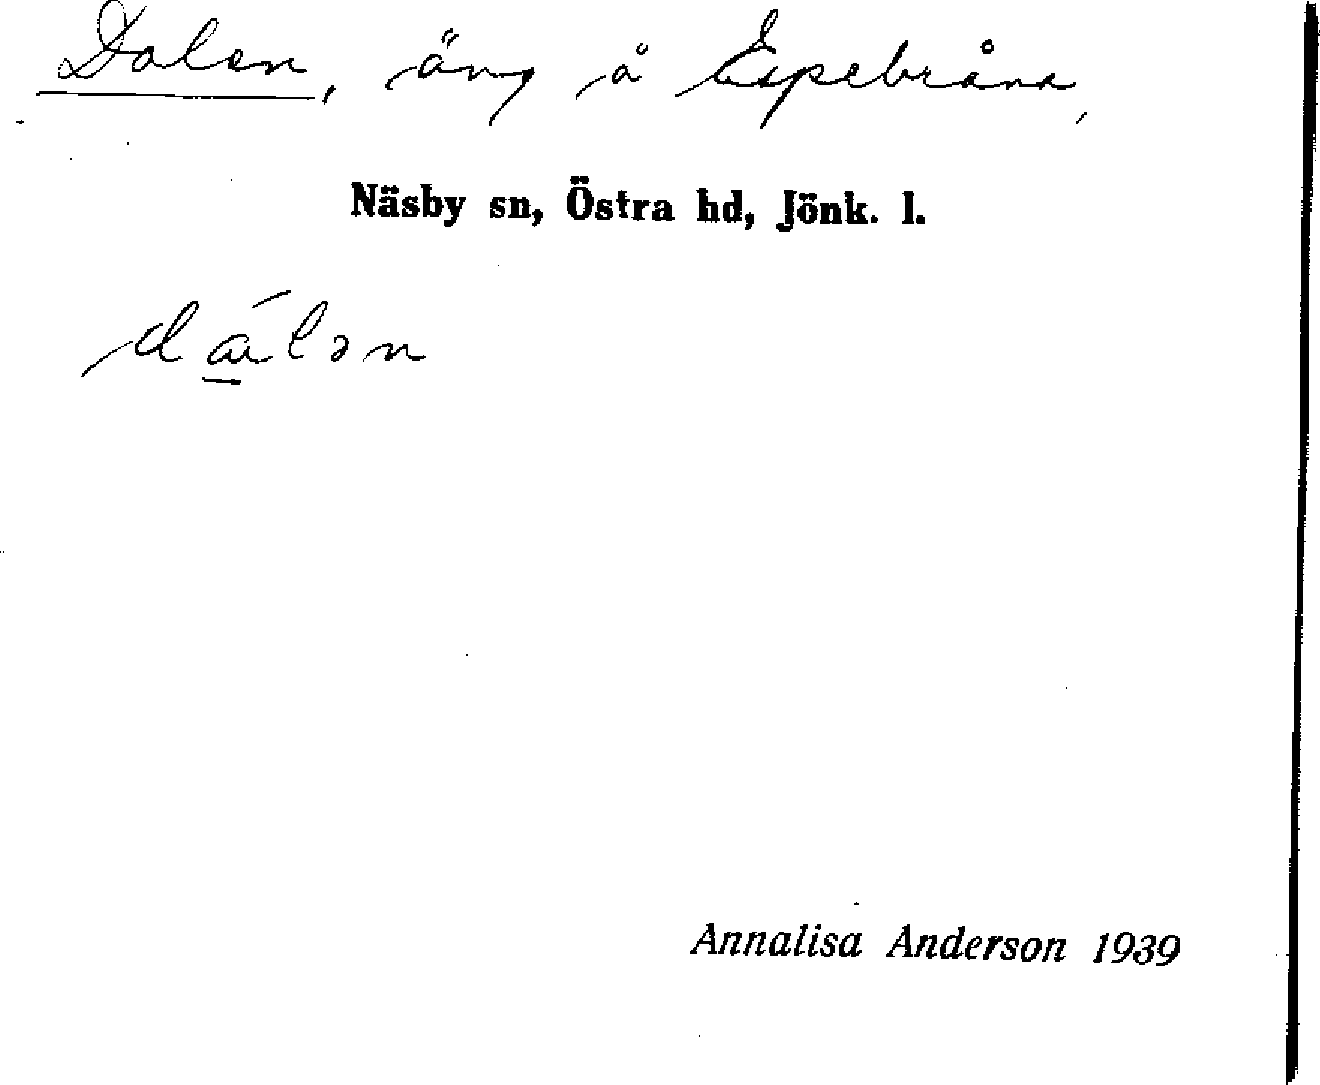 Dalen, äng å Espebråna,
Näsby sn, Östra hd, Jönk. l.
dɑ̲́lən
Annalisa Anderson 1939